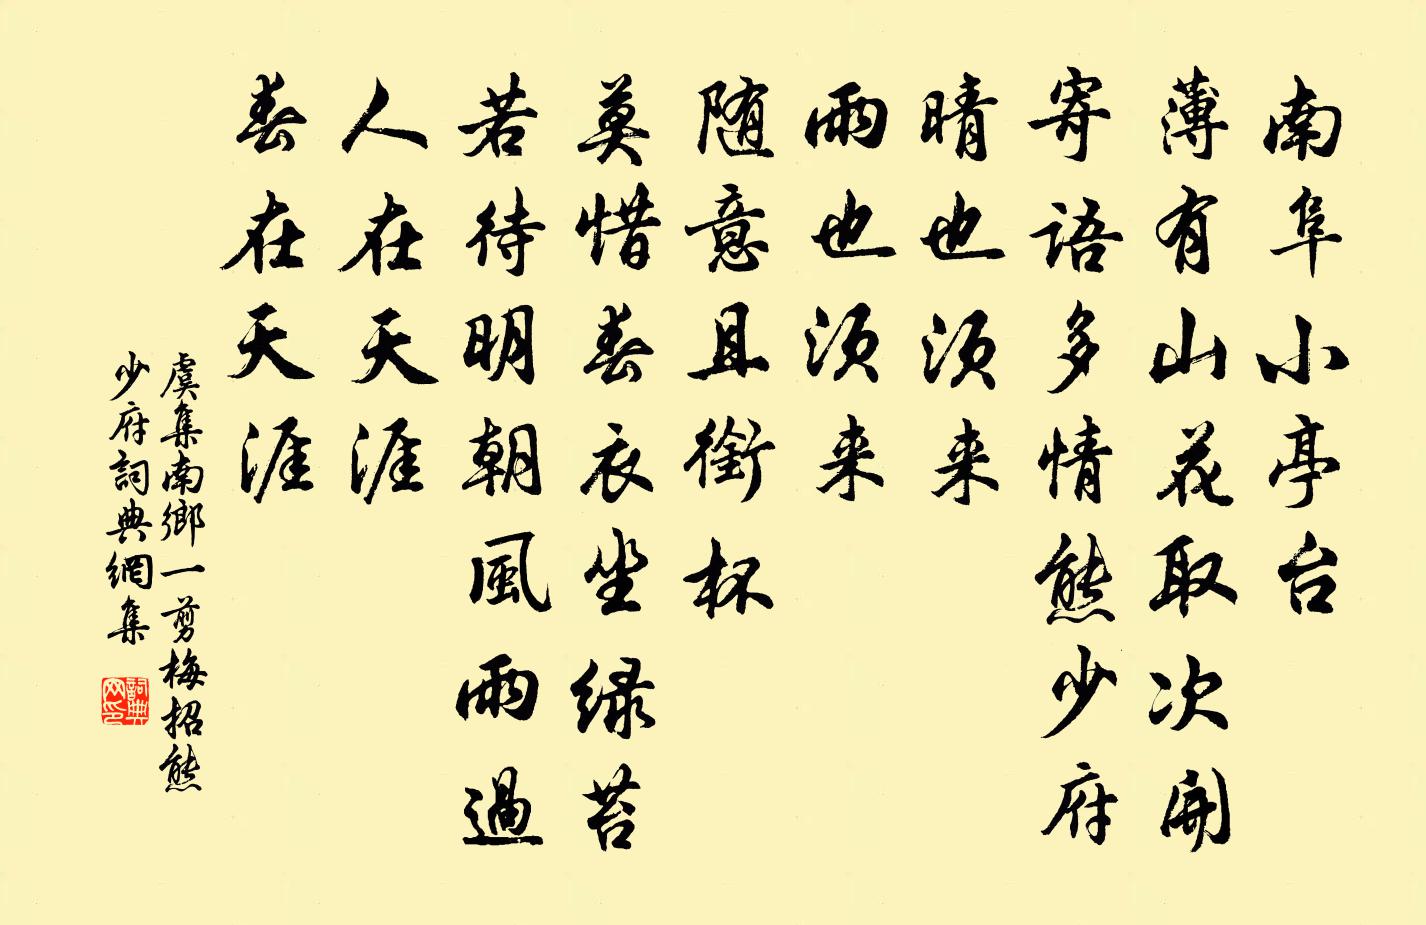 南阜小亭台
薄有山花取次開
寄語多情熊少府
晴也須来
雨也須来
随意且銜杯
莫惜春衣坐緑苔
若待明朝風雨過
人在天涯
春在天涯
虞集南鄉一剪梅招熊
少府詞典網集
詞典網印